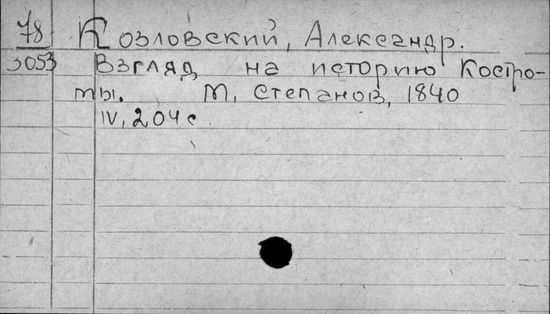 78 Козловский, Александр.
3053 Взгляд на историю Костро-
мы. М, Степанов, 1840
IV, 204 с